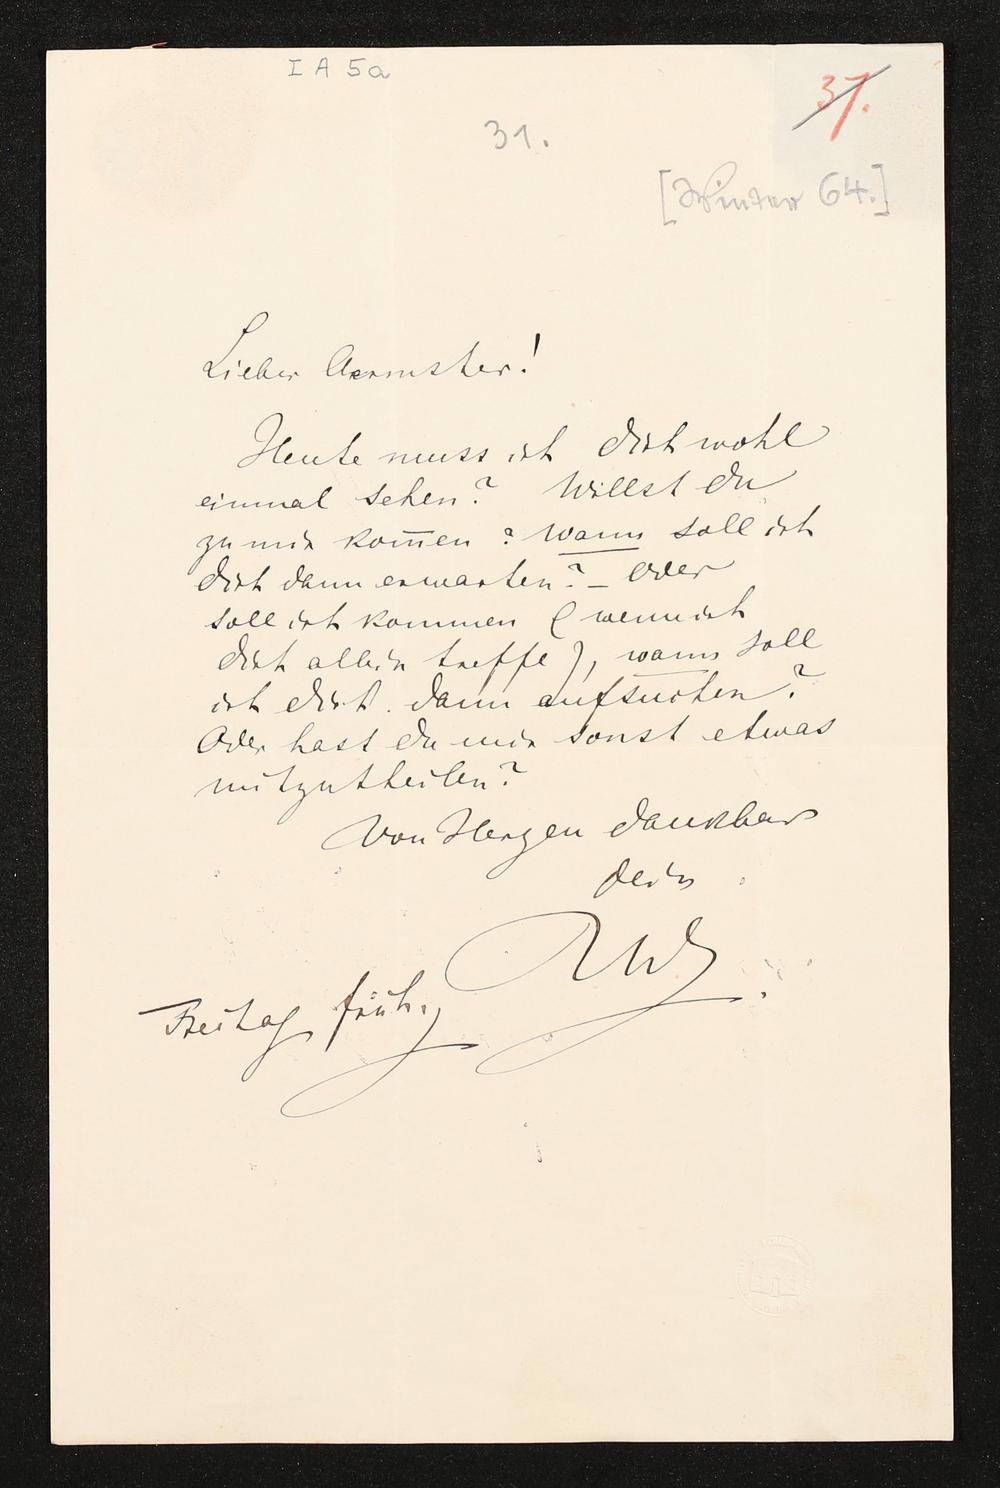 I A 5a
31.
37.
[Winter 64.]
Lieber Aermster!
Heute muss ich dich wohl
einmal sehen? Willst du
zu mir kom̅en? Wann soll ich
dich dann erwarten? – Oder
soll ich kommen (wenn ich
dich allein treffe), wann soll
ich dich dann aufsuchen?
Oder hast du mir sonst etwas
mitzutheilen?
Von Herzen dankbar
dein
RW.
Freitag früh.